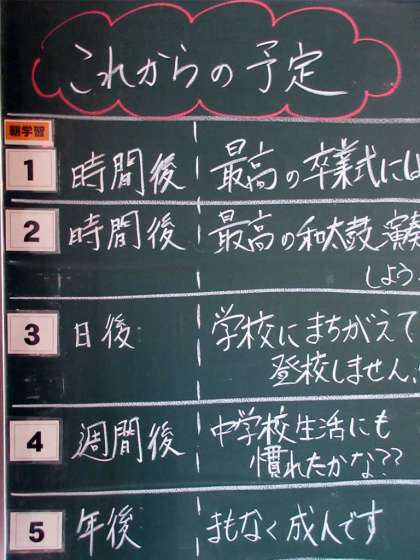 これからの予定
朝学習
1 時間後 最高の卒業式には
2 時間後 最高の和太鼓演奏
しよう
3 日後 学校にまちがえて
登校しません
4 週間後 中学校生活にも
慣れたかな??
5 年後 まもなく成人です